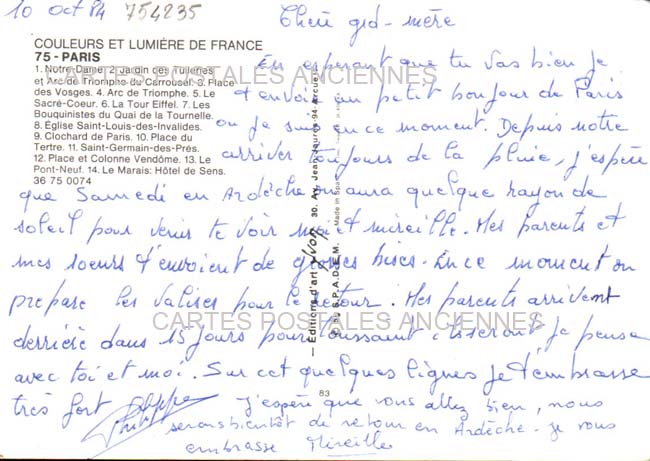 10 oct 84 754235
Chère grd-mère
COULEURS ET LUMIÈRE DE FRANCE
75 - PARIS
1. Notre-Dame. 2. Jardin des Tuileries
et Arc de Triomphe du Carrousel. 3. Place
des Vosges. 4. Arc de Triomphe. 5. Le
Sacré-Coeur. 6. La Tour Eiffel. 7. Les
Bouquinistes du Quai de la Tournelle.
8. Église Saint-Louis-des-Invalides.
9. Clochard de Paris. 10. Place du
Tertre. 11. Saint-Germain-des-Prés.
12. Place et Colonne Vendôme. 13. Le
Pont-Neuf. 14. Le Marais: Hôtel de Sens.
36 75 0074
En esperant que tu vas bien je
t'envoie un petit bonjour de Paris
ou je suis en ce moment. Depuis notre
arriver toujours de la pluie, j'espère
que Samedi en Ardèche on aura quelque rayon de
soleil pour venir te voir moi et mireille. Mes parents et
mes soeurs t'envoient de grosses bises. En ce moment on
prepare les valises pour le retour. Mes parents arrivent
derrière dans 15 jours pour toussaint ils seront je pense
avec toi et moi. Sur cet quelques lignes je t'embrasse
très fort Philippe
J'espère que vous allez bien, nous
serons bientôt de retour en Ardèche. Je vous
embrasse Mireille
Editions d'art Yvon 30, Av. Jean Jaurès - 94 - Arcueil
© by S.P.A.D.E.M. Made in
83
CARTES POSTALES ANCIENNES
CARTES POSTALES ANCIENNES